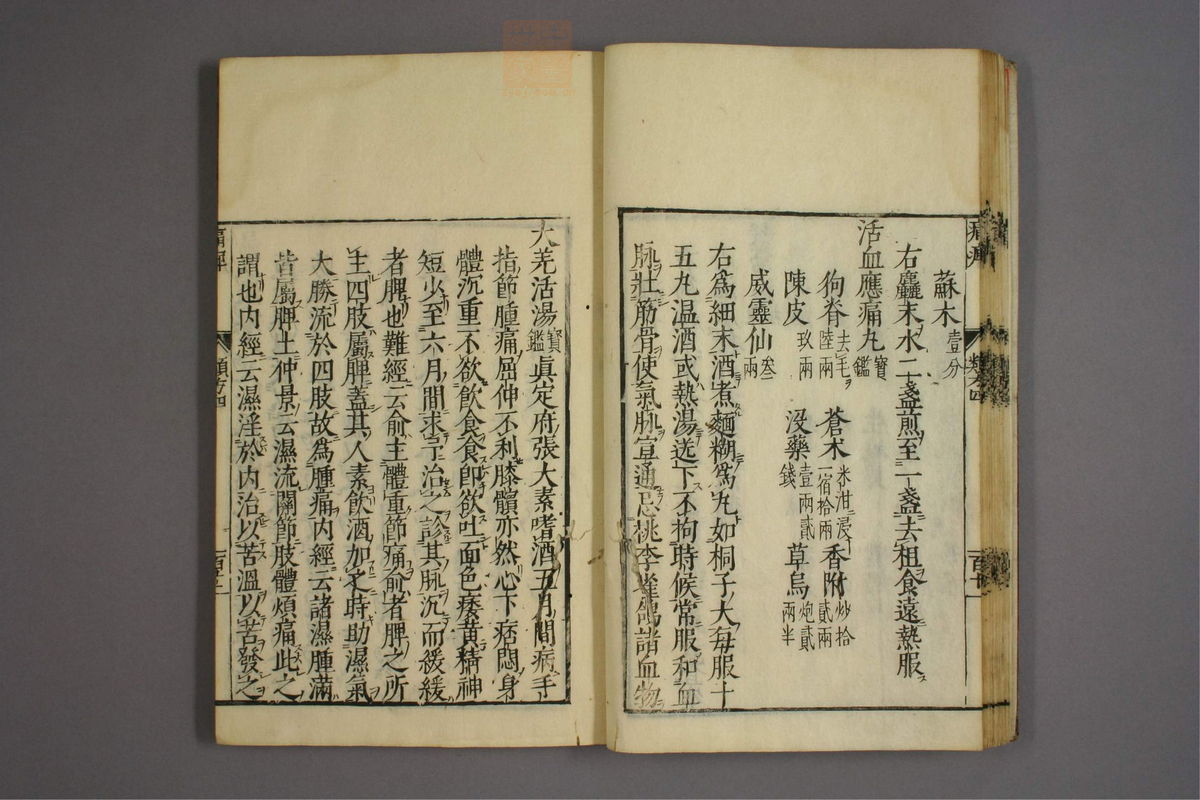 蘇木壹分
右麤末水二盞煎至一盞去粗食遠熱服
活血應痛丸寶鑑
狗脊去毛陸兩 蒼朮米泔浸一宿拾兩 香附炒拾貳兩
陳皮玖兩 没藥壹兩貳錢 草烏炮貳兩半
威靈仙叁兩
右爲細末酒煮麵糊爲丸如桐子大每服十
五丸温酒或熱湯送下不拘時候常服和血
脉壯筋骨使氣脉宣通忌桃李雀鴿諸血物
大羌活湯寶鑑眞定府張大素嗜酒五月間病手
指節腫痛屈伸不利膝髕亦然心下痞悶身
體沉重不欲飲食食即欲吐面色痿黄精神
短少至六月間求予治之診其脉沉而緩緩
者脾也難經云俞主體重節痛俞者脾之所
主四肢屬脾蓋其人素飲酒加之時助濕氣
大勝流於四肢故爲腫痛内經云諸濕腫滿
皆屬脾土仲景云濕流關節肢體煩痛此之
謂也内經云濕淫於内治以苦溫以苦發之